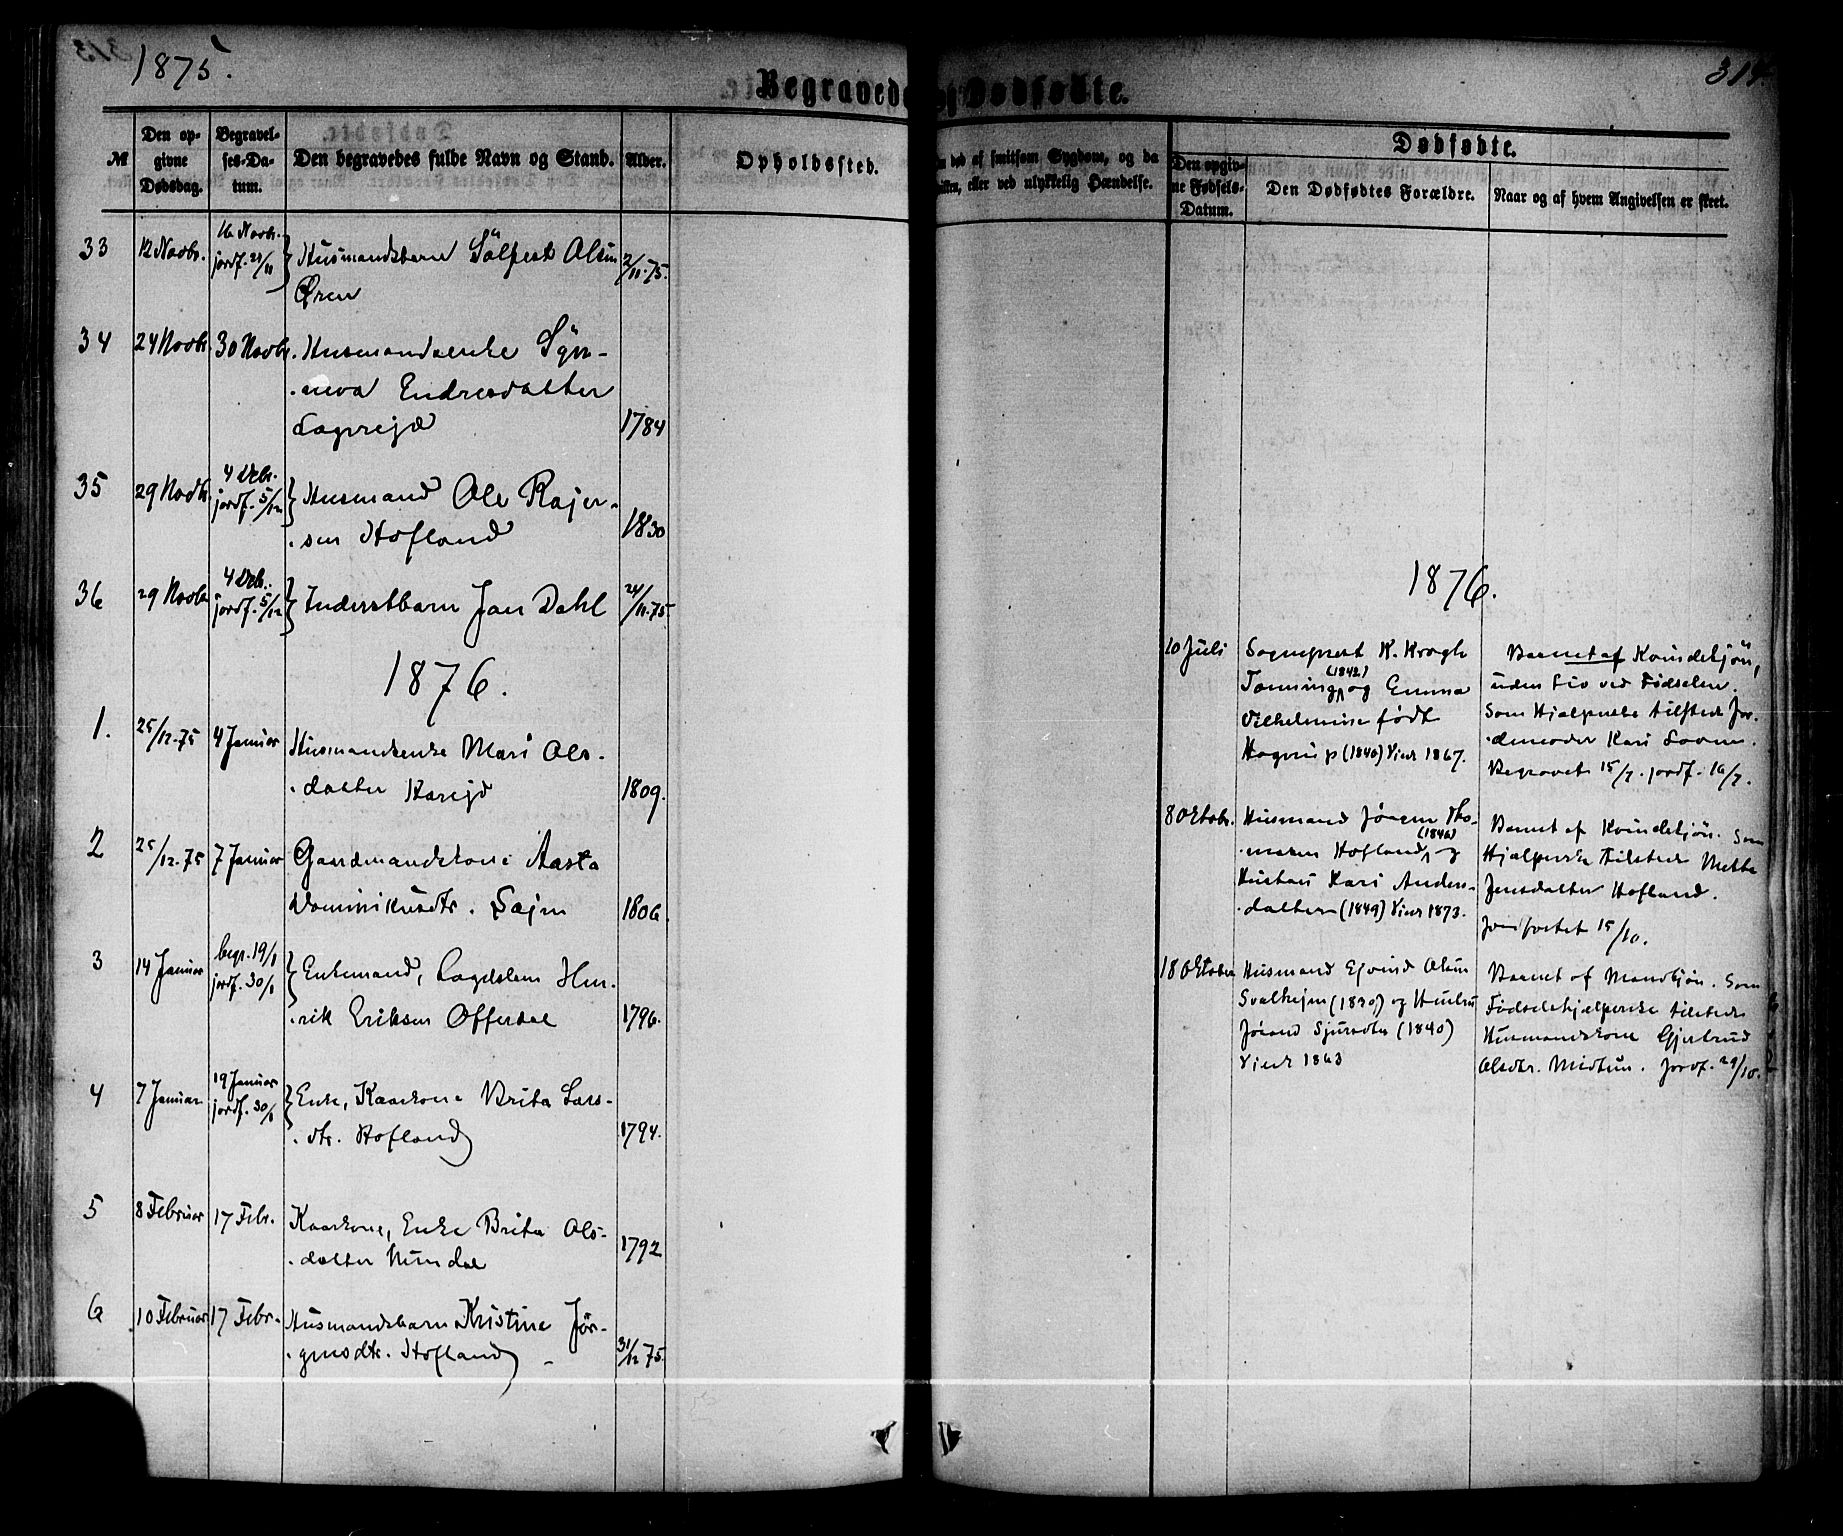 1875.
314.
Begravede og Dødfødte.
№
Den op-
givne
Dødsdag.
Begravel-
ses-Da-
tum.
Den begravedes fulde Navn og Stand.
Alder.
Opholdssted.
ved af smitsom Sygdom, og da
eller ved ulykkelig Hændelse.
Dødfødte.
Den opgiv-
ne Fødsels-
Datum.
Den Dødfødtes Forældre.
Naar og af hvem Angivelsen er skeet.
33 12 Novbr. 16 Novbr. jordf. 21/11 Husmandsbarn Sölfest Olsen 2/11.75.
Øren
34 24 Novbr. 30 Novbr. Husmandsenke Syn-
neva Endresdatter
Lægreid 1784
35 29 Novbr 4 Debr. jordf. 5/12 Husmand Ole Rajer-
sen Hofland 1830
36 29 Novbr 4 Debr. jordf. 5/12 Inderstbarn Jan Dahl 24/11.75.
1876.
1. 25/12.75 4 Januar Husmandsenke Mari Ols-
datter Kareid 1809.
2 25/12.75 7 Januar Gaardmandskone Aasta
Dominikusdtr. Sejm 1806.
3 14 Januar begr. 19/1 jordf. 30/1 Enkemand, Lægdslem Hen-
rik Eriksen Offerdal 1796.
4 7 Januar 19 Januar jordf. 30/1 Enke, Kaarkone Brita Lars-
dtr. Hofland 1794.
5 8 Februar 17 Febr. Kaarkone, Enke Brita Ols-
datter Nundal 1792
6 10 Februar 17 Febr. Husmandsbarn Kristine Jør-
gensdtr. Hofland 31/12 75.
1876.
10 Juli Sognepræst K. Krogh
Tonning (1842) og Emma
Vilhelmine født
Hagerup (1840) Viede 1867.
Barnet af Kvindekjön,
uden Liv ved Fødselen.
Som Hjælperske tilstede Jor-
demoder Kari Loven.
Begravet 15/7. jordf. 16/7.
8 Oktobr. Husmand Jörgen Tho-
massen Hofland (1846) og
Hustru Kari Anders-
datter (1849) Viede 1873.
Barnet af Kvindekjön. Som
Hjælperske tilstede Mette
Jensdatter Hofland.
Jordfæstet 15/10.
18 Oktober Husmand Ejvind Olsen
Svalhejm (1830) og Hustru
Jörand Sjursdtr (1840)
Viede 1863
Barnet af Mandkjön. Som
Fødselshjælperske tilstede
Husmandskone Gjertrud
Olsdtr. Midtun. Jordf. 29/10.